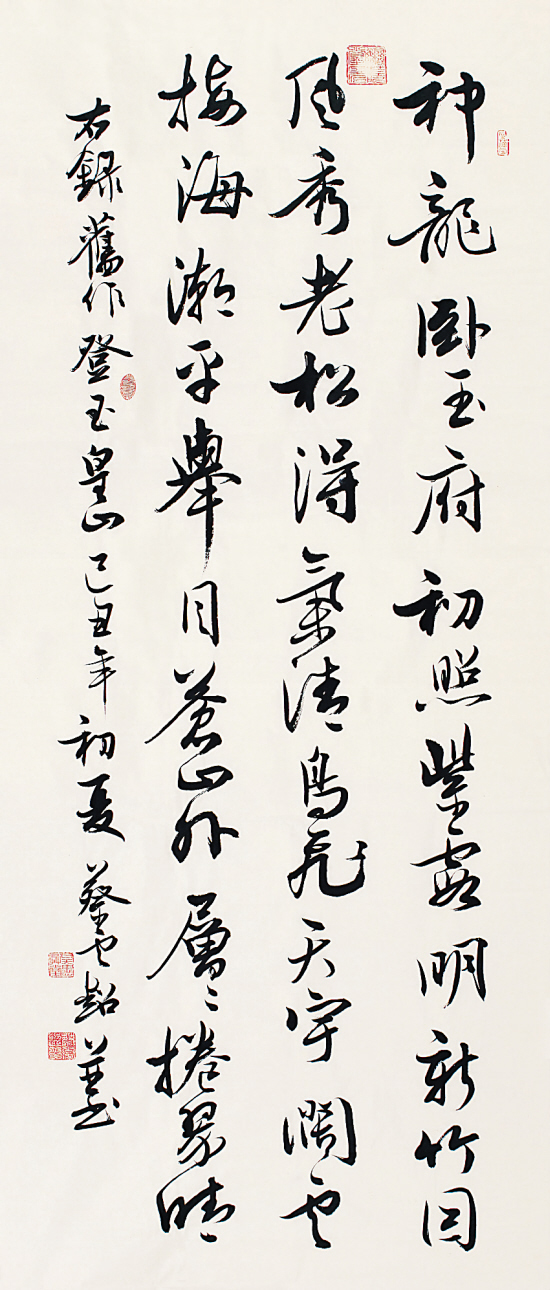 神龍卧玉府初照紫霞明新竹因
風秀老松得氣清鳥飛天宇闊雲
接海潮平舉目蒼山外層〻捲翠晴
右錄舊作登玉皇山己丑年初夏蔡雲超並書